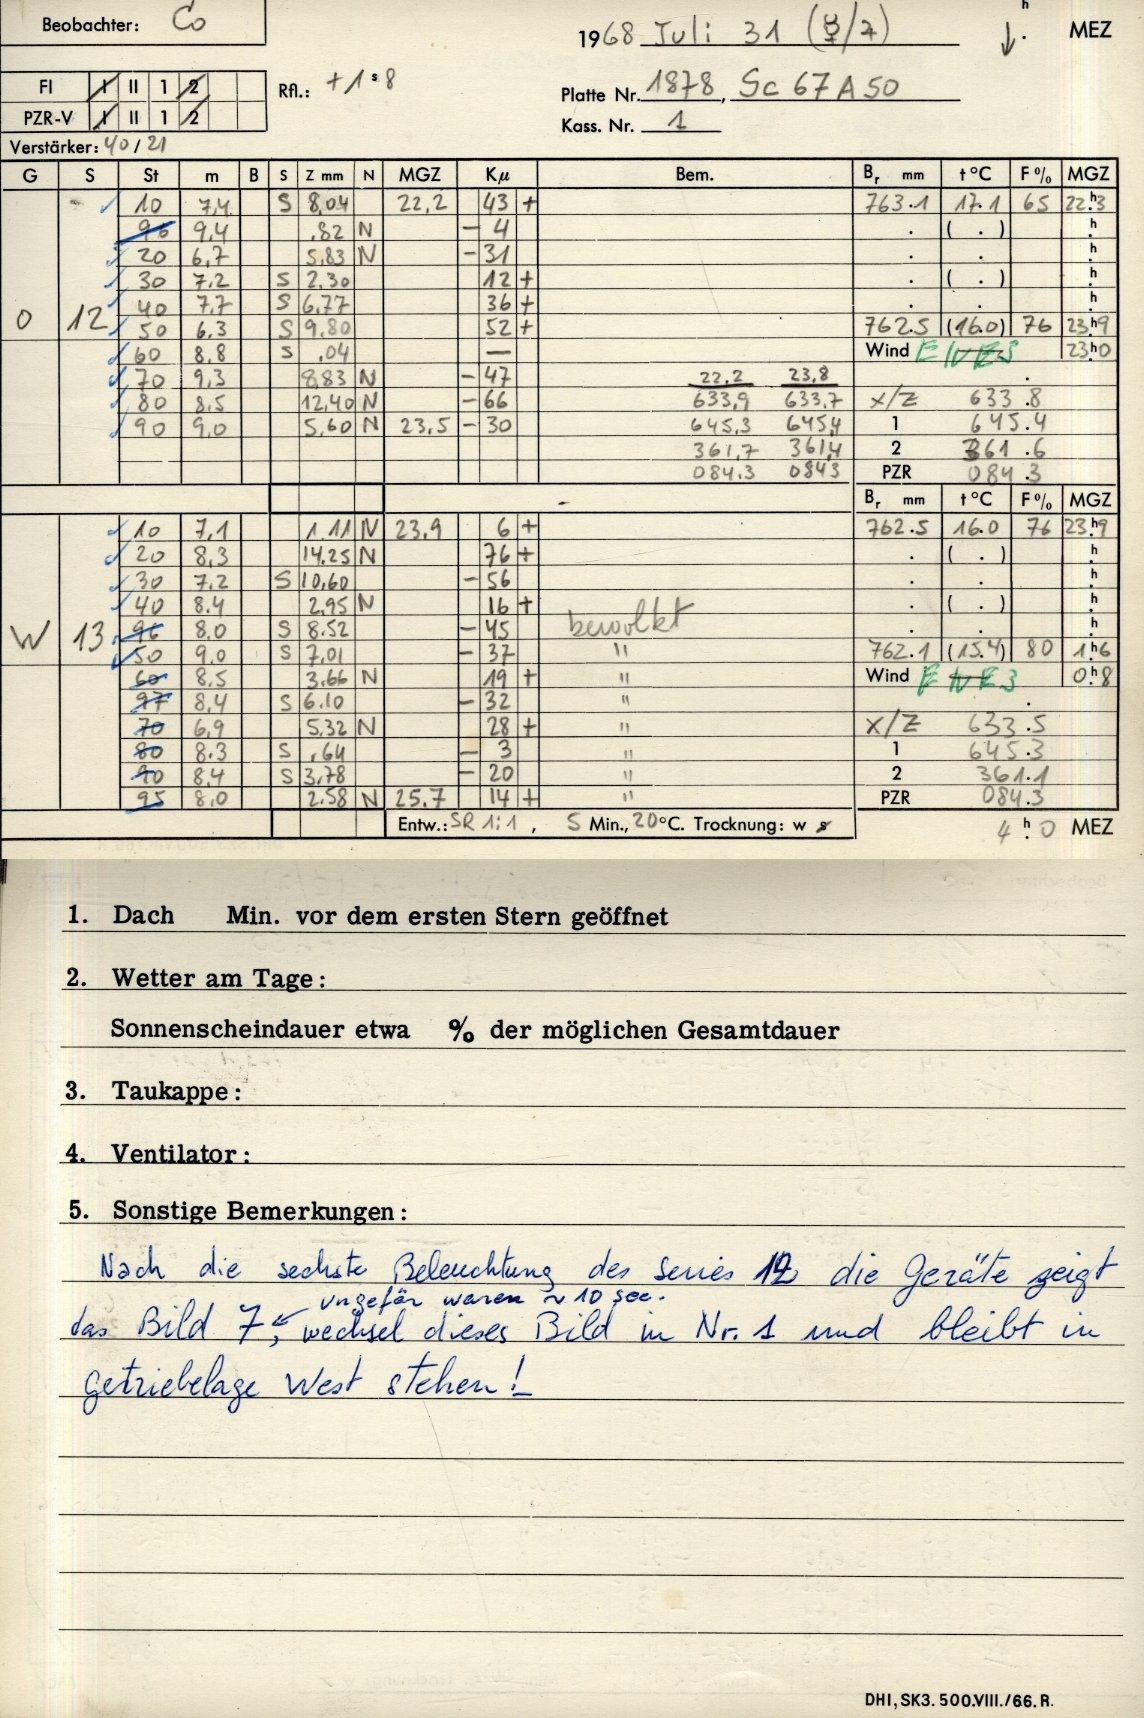 Beobachter: Co
1968 Juli 31 (☿/♃) h . MEZ
FI I II 1 2 Rfl.: +1ˢ8
Platte Nr. 1878, Sc 67 A 50
PZR-V I II 1 2
Kass. Nr. 1
Verstärker: 40/21
G S St m B S Z mm N MGZ Kμ Bem. Br mm t °C F% MGZ
10 7,4 S 8,04 22,2 43 + 763.1 17.1 65 22.h3
96 9,4 .82 N - 4 . ( . ) h
20 6,7 5,83 N - 31 . . h
30 7,2 S 2,30 12 + . ( . ) h
40 7,7 S 6,77 36 + . . h
O 12 50 6,3 S 9,80 52 + 762.5 (16.0) 76 23h9
60 8,8 S .04 — Wind E 3 23h0
70 9,3 8,83 N - 47 22,2 23,8 .
80 8,5 12,40 N - 66 633,9 633,7 x/z 633.8
90 9,0 5,60 N 23,5 - 30 645,3 645,4 1 645.4
361,7 361,4 2 361.6
084.3 084.3 PZR 084.3
Br mm t °C F% MGZ
10 7,1 1.11 N 23,9 6 + 762.5 16.0 76 23h9
20 8,3 14.25 N 76 + . ( . ) h
30 7,2 S 10,60 - 56 . . h
40 8.4 2,95 N 16 + . ( . ) h
W 13 96 8,0 S 8.52 - 45 bewölkt . . h
50 9,0 S 7,01 - 37 " 762.1 (15.4) 80 1h6
60 8,5 3,66 N 19 + " Wind E 3 0h8
97 8,4 S 6.10 - 32 " .
70 6,9 5,32 N 28 + " x/z 633.5
80 8.3 S .64 - 3 " 1 645.3
90 8,4 S 3,78 - 20 " 2 361.1
95 8,0 2.58 N 25.7 14 + " PZR 084.3
Entw.: SR 1:1 , 5 Min., 20°C. Trocknung: w s 4 h 0 MEZ
1. Dach Min. vor dem ersten Stern geöffnet
2. Wetter am Tage:
Sonnenscheindauer etwa % der möglichen Gesamtdauer
3. Taukappe:
4. Ventilator:
5. Sonstige Bemerkungen:
Nach die sechste Beleuchtung des Series 12 die Geräte zeigt
ungefär waren ~ 10 sec.
das Bild 7, wechsel dieses Bild in Nr. 1 und bleibt in
getriebelage West stehen!
DHI, SK3. 500.VIII./66. R.